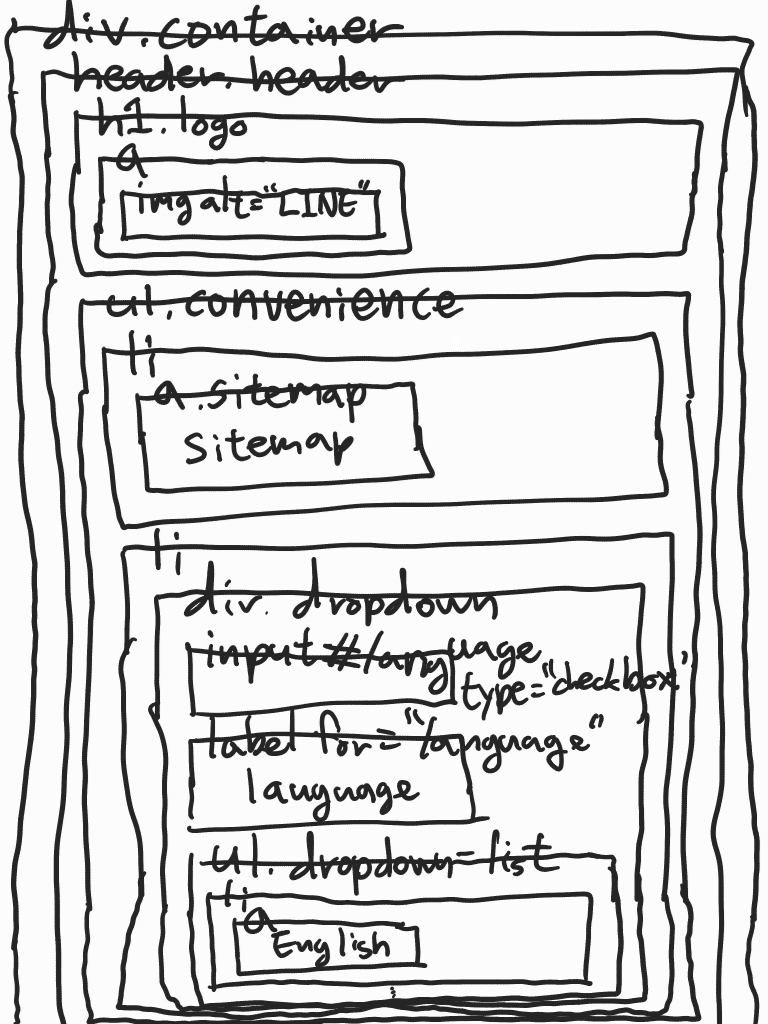 div.container
header.header
h1.logo
a
img alt="LINE"
ul.convenience
li
a.sitemap
sitemap
li
div.dropdown
input#language
type="checkbox"
label for="language"
language
ul.dropdown-list
li
a
English